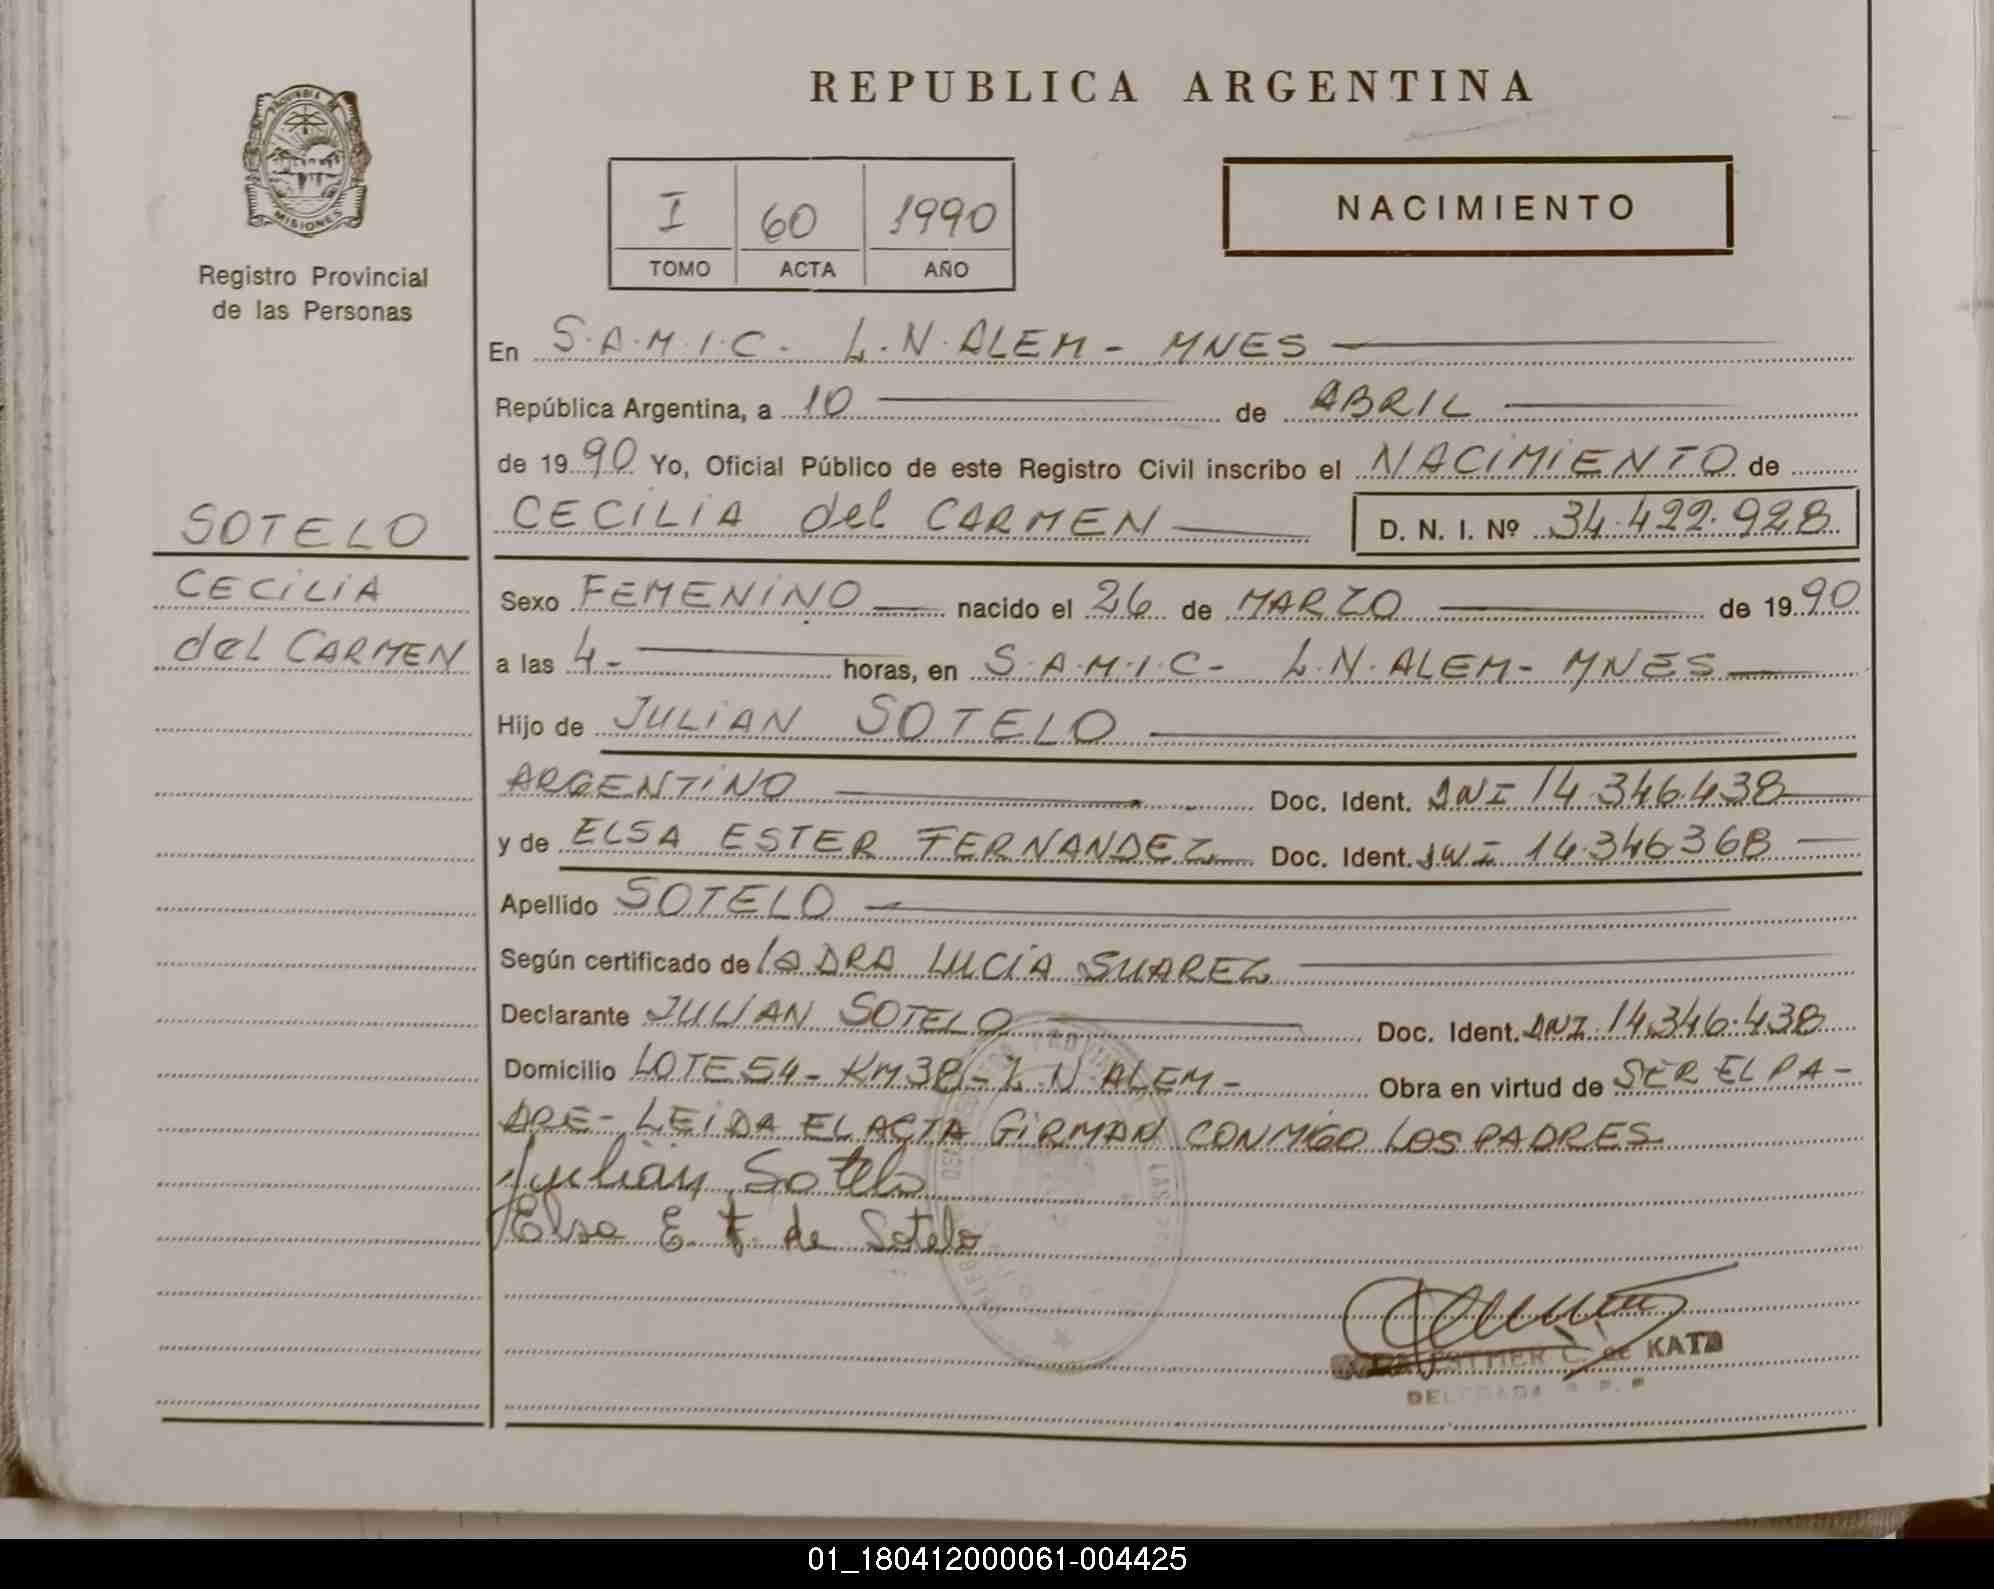 REPUBLICA ARGENTINA
PROVINCIA DE
MISIONES
Registro Provincial
de las Personas
I 60 1990
TOMO ACTA AÑO
NACIMIENTO
En S.A.M.I.C. L.N. ALEM - MNES
República Argentina, a 10 de ABRIL
de 1990 Yo, Oficial Público de este Registro Civil inscribo el NACIMIENTO de
CECILIA del CARMEN D. N. I. Nº 34.422.928
SOTELO
CECILIA
del CARMEN
Sexo FEMENINO nacido el 26 de MARZO de 1990
a las 4- horas, en S.A.M.I.C- L.N. ALEM- MNES
Hijo de JULIAN SOTELO
ARGENTINO Doc. Ident. DNI 14.346.438
y de ELSA ESTER FERNANDEZ Doc. Ident. DNI 14.346.368
Apellido SOTELO
Según certificado de la DRA LUCIA SUAREZ
Declarante JULIAN SOTELO Doc. Ident. DNI 14.346.438
Domicilio LOTE 54- KM 38- L.N. ALEM- Obra en virtud de SER EL PA-
DRE- LEIDA EL ACTA GIRMAN CONMIGO LOS PADRES
Julián Sotelo
Elsa E. F. de Sotelo
ESTHER C. de KATZ
DELEGADA R. P. P
01_180412000061-004425